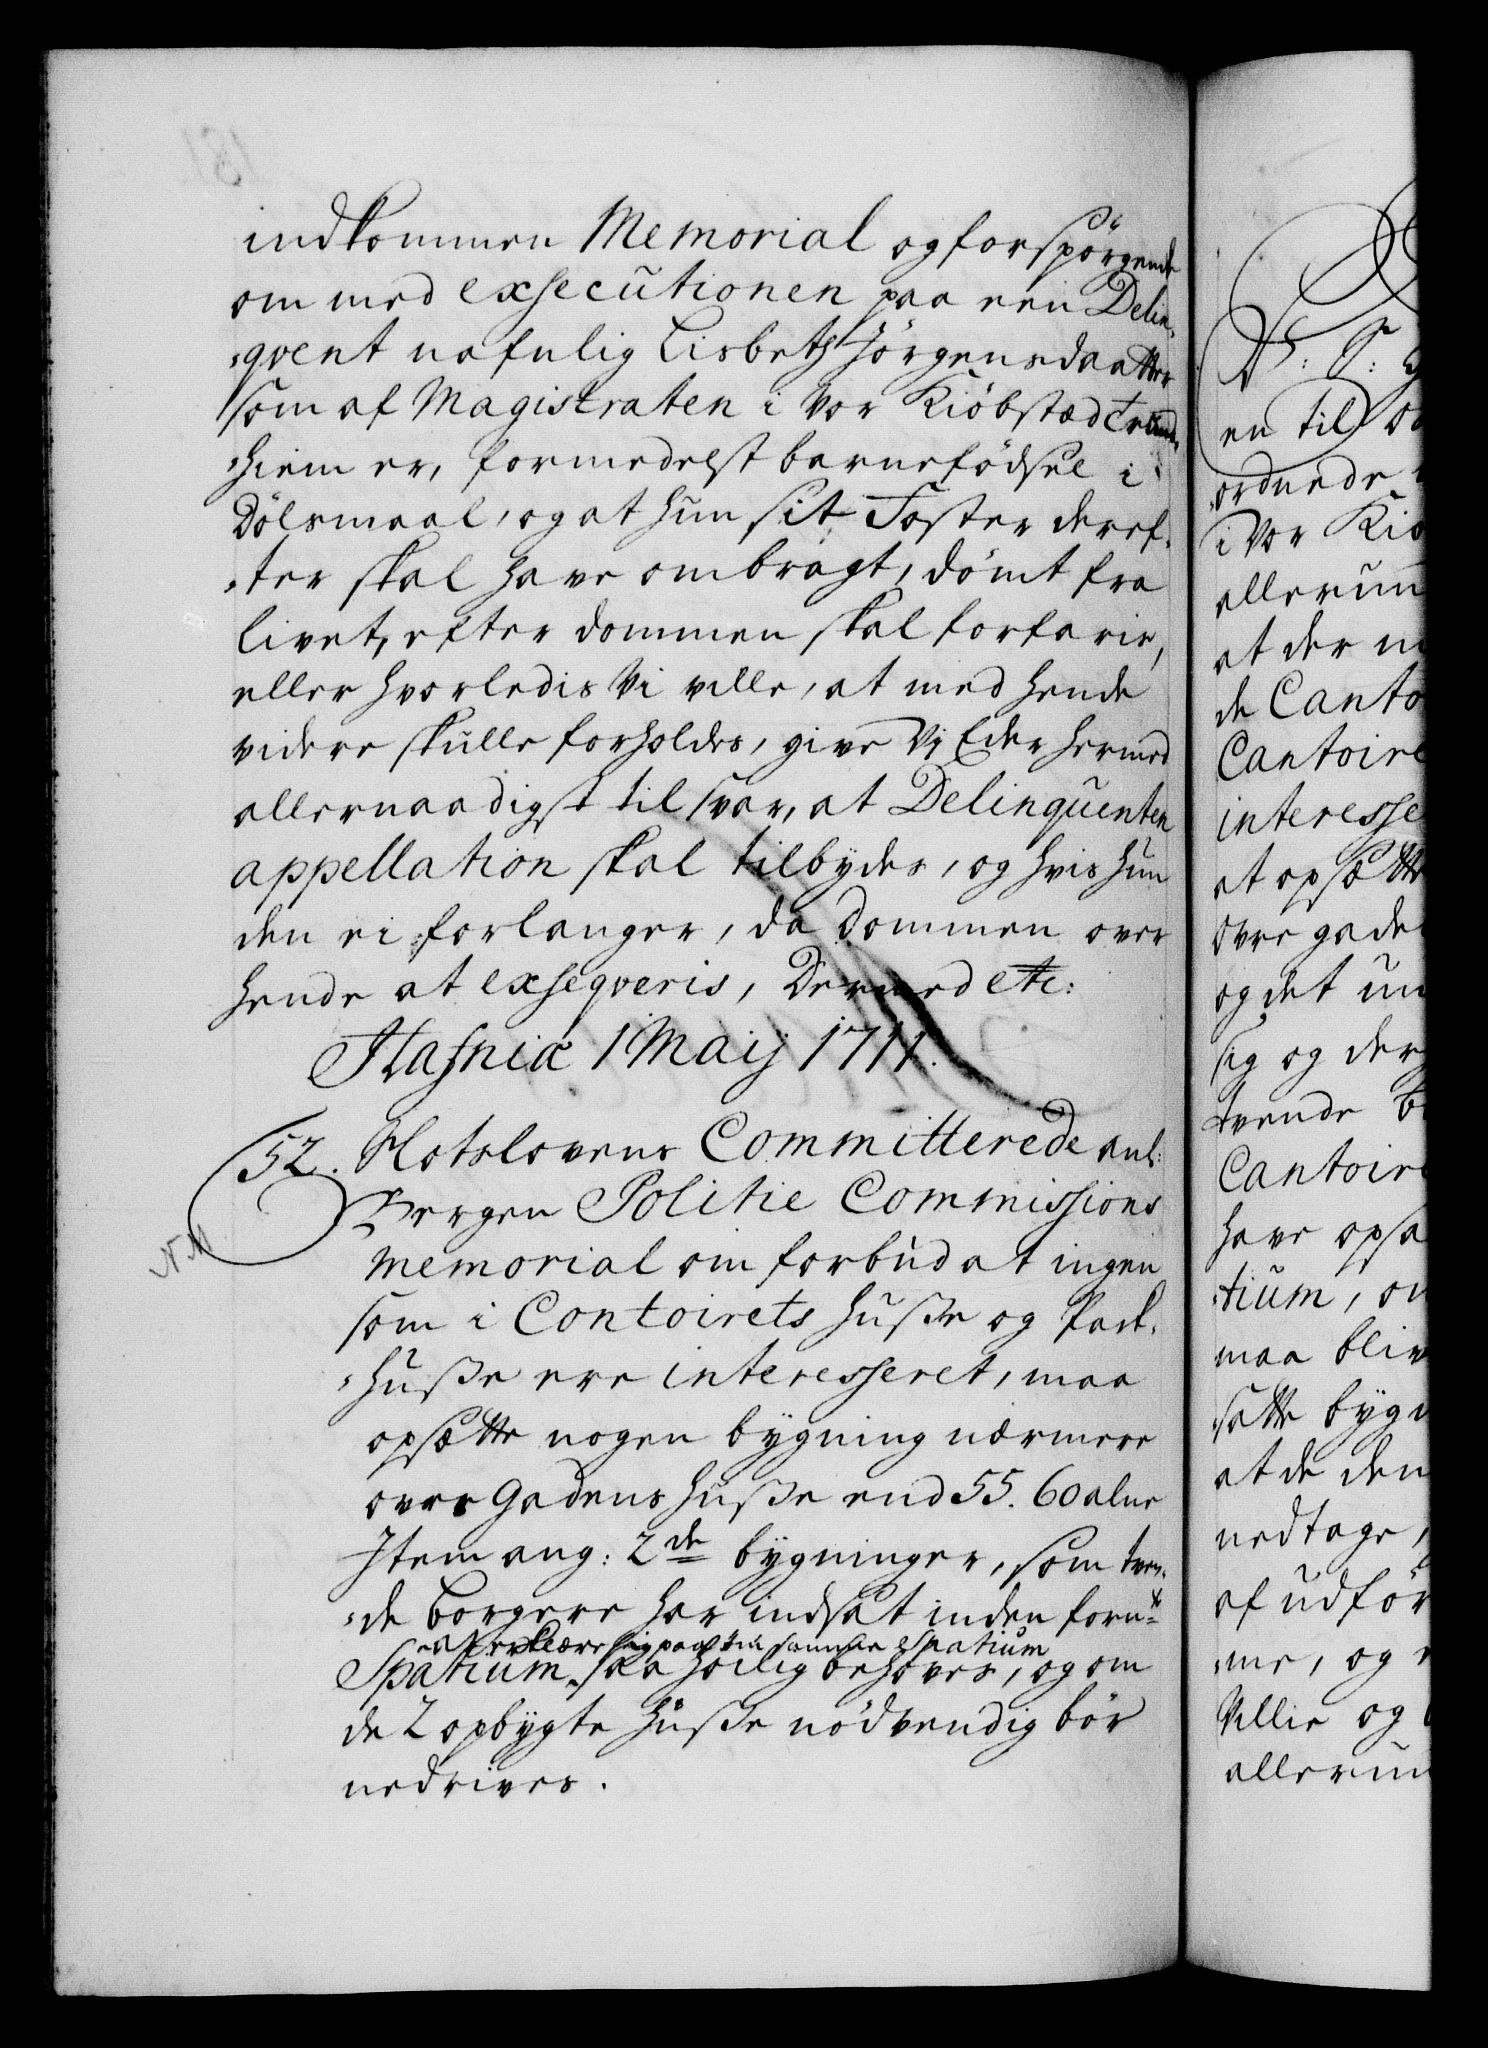 indkommen Memorial og forspörgende
om med exsecutionen paa een Delin-
-qvent nafnlig Lisbeth Jörgensdaatter
som af Magistraten i Vor Kiöbstæd Trund-
-hiem er, formedelst barnefödsel i
Dölsmaal, og at hun sit Foster deref-
-ter skal have ombragt, dömt fra
livet, efter dommen skal forfaris,
eller hvorledis Vi ville, at med hende
videre skulle forholdes, give Vi Eder hermed
allernaadigst til svar, at Delinquenten
appellation skal tilbydes, og hvis hun
den ei forlanger, da Dommen over
hende at exseqveris, Dermed etc:
Hafniæ 1 Maij 1711.
52. Slotslovens Committerede anl:
Bergen Politie Commissions
Memorial om forbud at ingen
som i Contoirets Huße og Pack-
-huße ere interesseret, maa
opsætte nogen bygning nærmere
ovre Gadens Huße end 55. 60 alne
Item ang: 2de bygninger, som tven-
-de borgere har indsat inden forne
at erklære sig paa om samme Spatium
Spatium saa höilig behöves, og om
de 2 opbygte Huße nödvendig bör
nedrives.
V: S: G
en til
ordnede
i Vor Kiö
allerun
at der
de Canto
Cantoire
interesse
at opsætte
ovre gade
og det un
sig og der
tvende b
Cantoire
have opsa
-tium, om
maa bliv
satte bygn
at de den
nedtage,
af udför
-me, og
Villie og
allerun